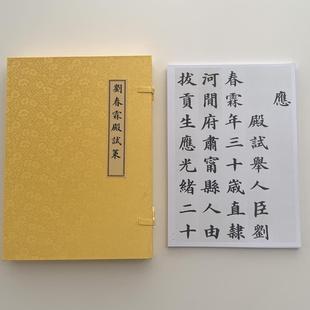 劉春霖殿試策
應
殿試舉人臣劉
春霖年三十歲直隸
河間府肅甯縣人由
拔貢生應光緒二十